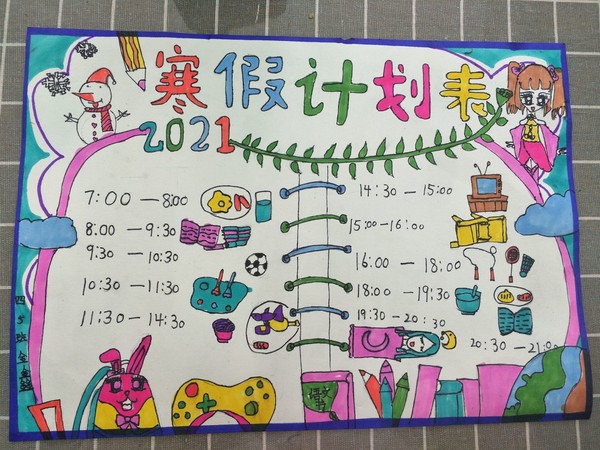 寒假计划表
2021
7:00 — 8:00
8:00 — 9:30
9:30 — 10:30
10:30 — 11:30
11:30 — 14:30
14:30 — 15:00
15:00 — 16:00
16:00 — 18:00
18:00 — 19:30
19:30 — 20:30
20:30 — 21:00
四5班
语文
书